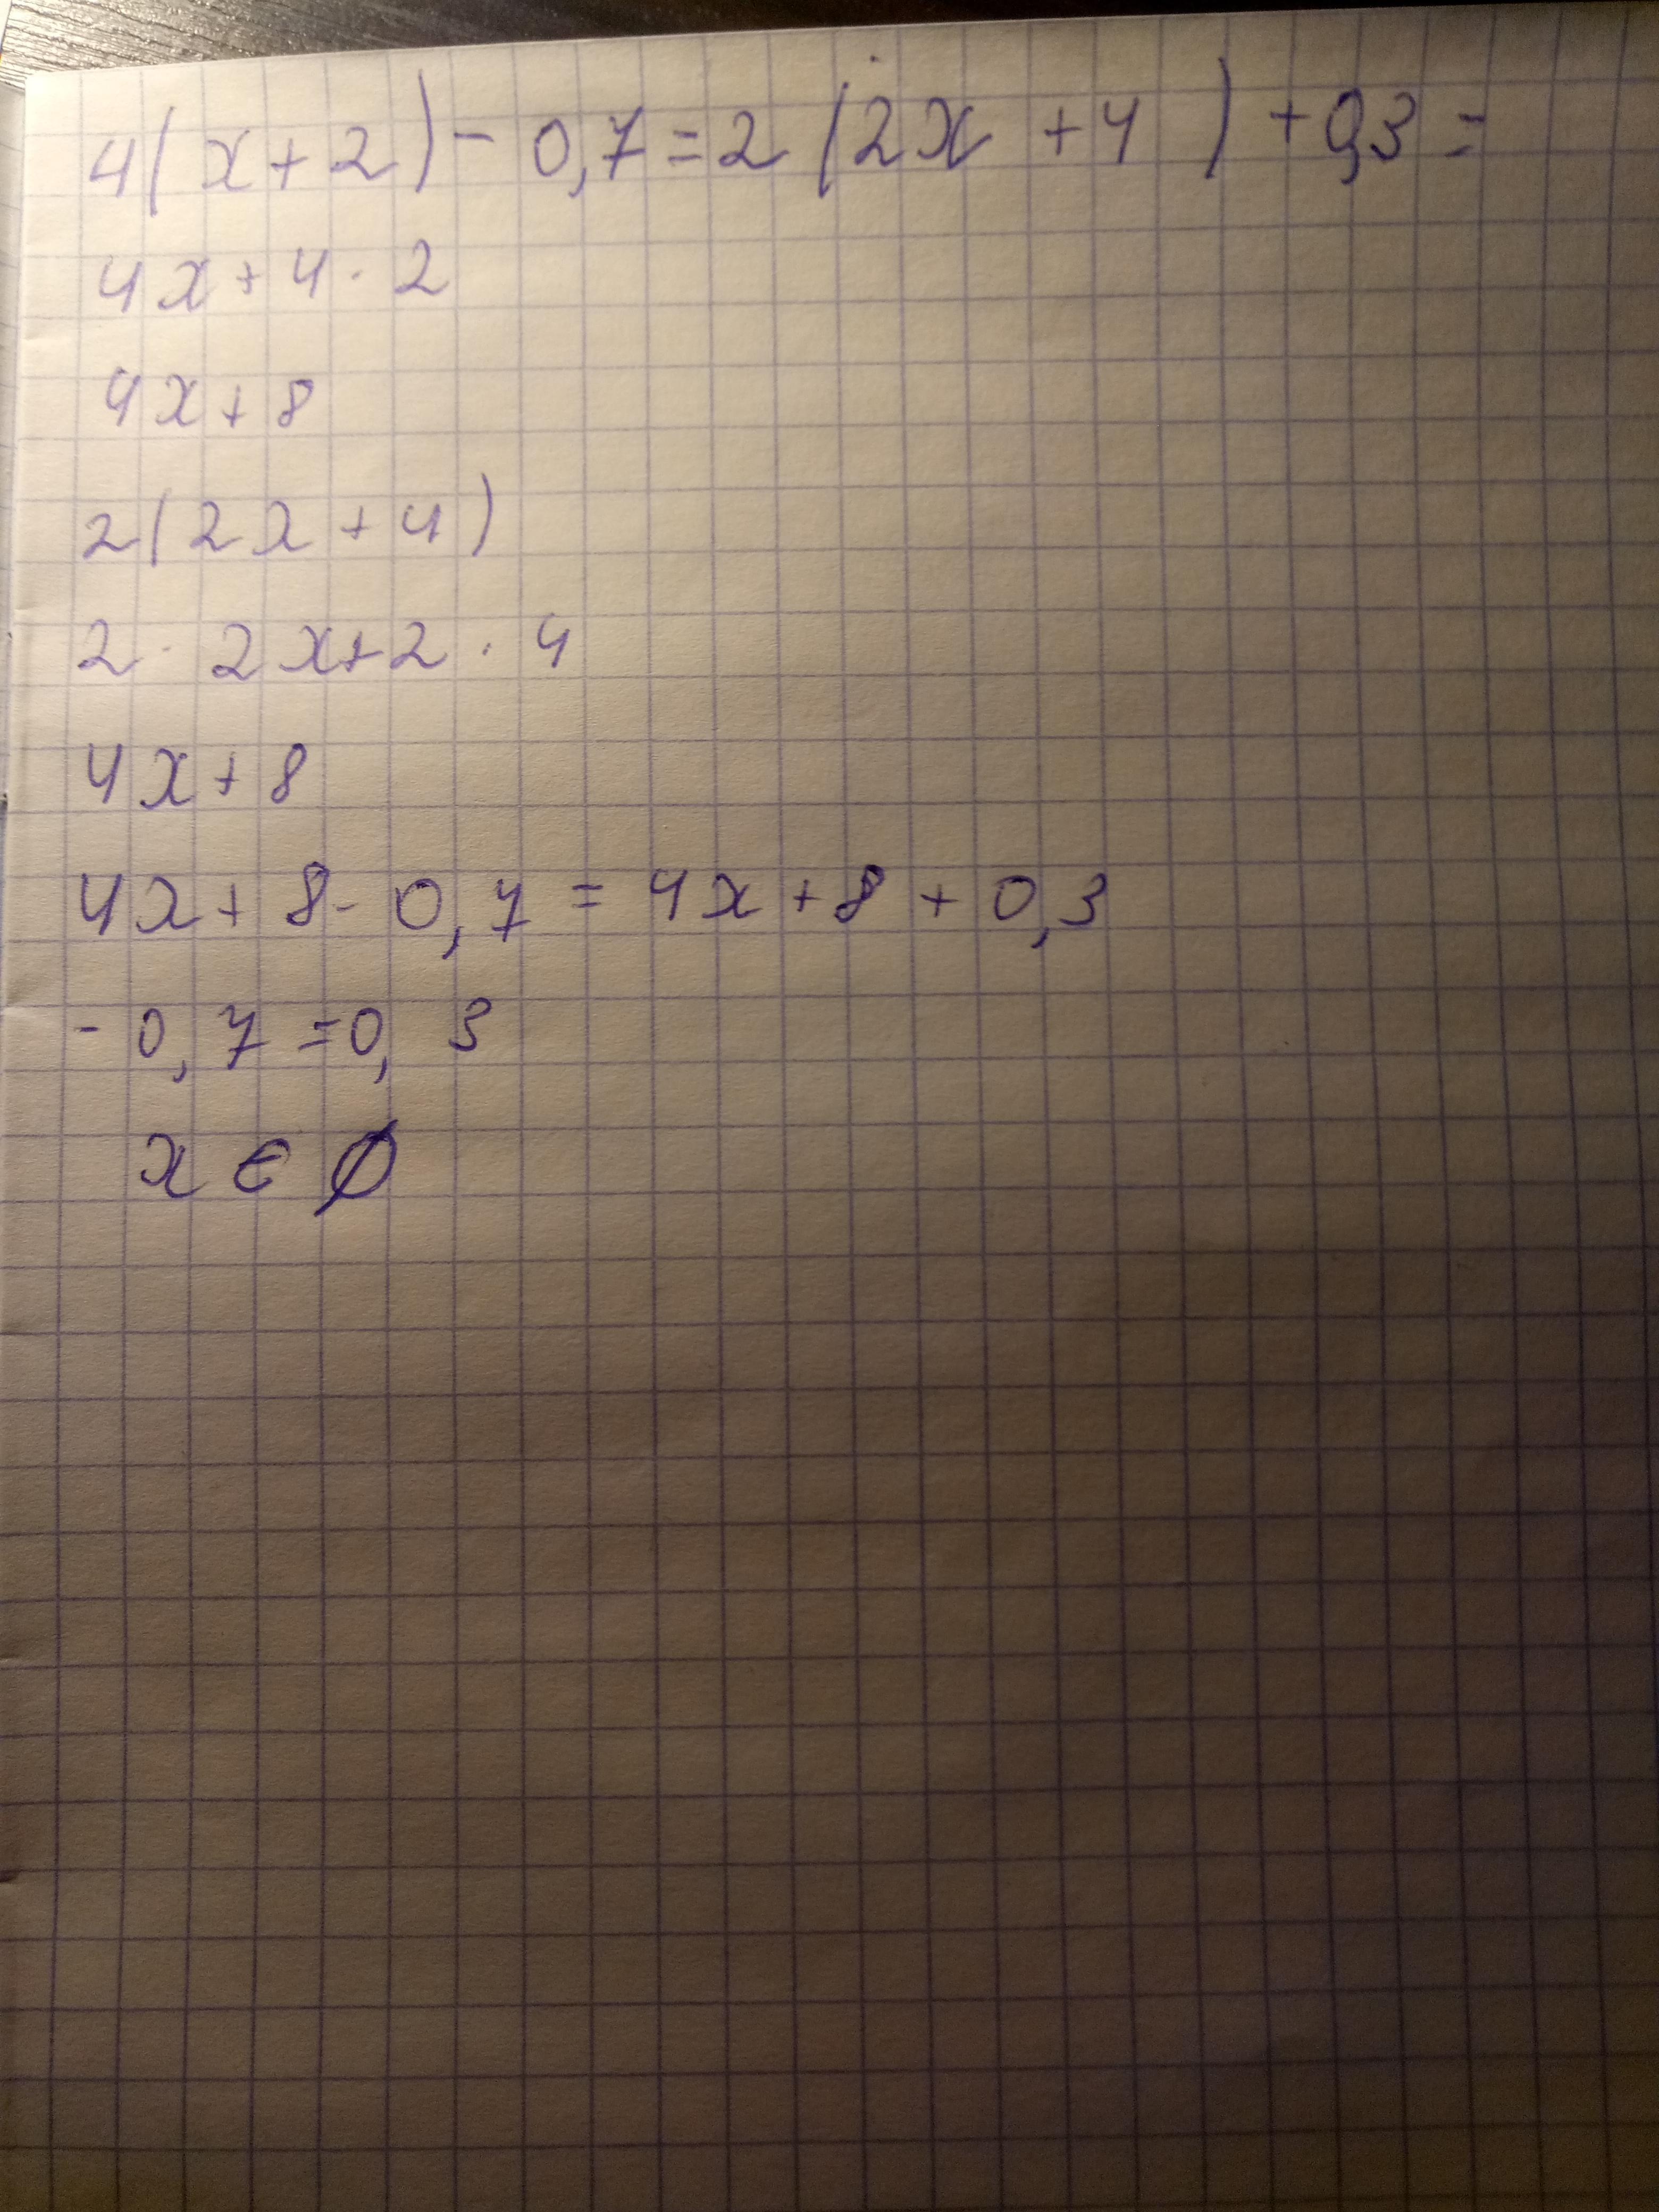 4(x+2)-0,7=2(2x+4)+0,3=
4x+4·2
4x+8
2(2x+4)
2·2x+2·4
4x+8
4x+8-0,7=4x+8+0,3
-0,7=0,3
x∈∅